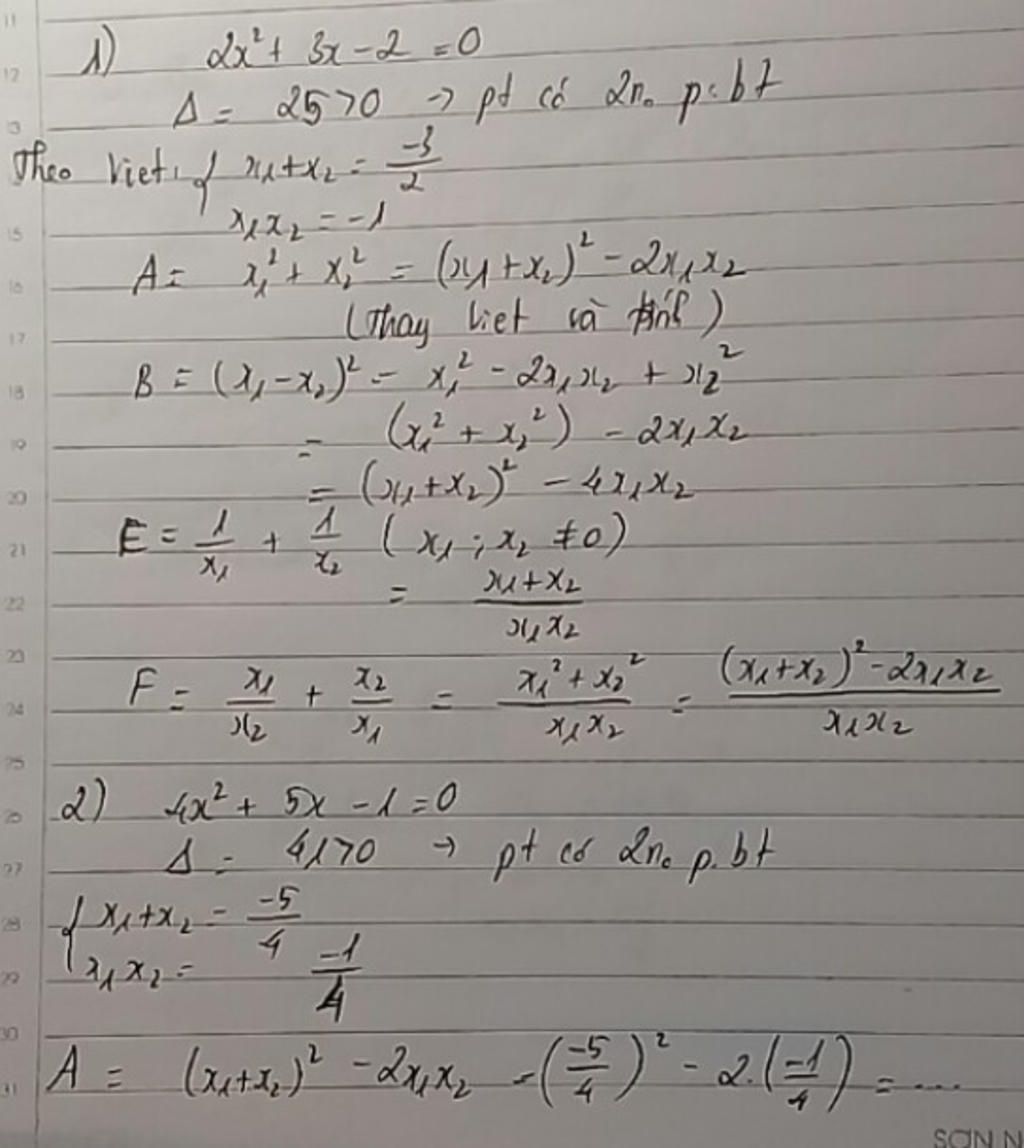 1) 2x² + 3x - 2 = 0
Δ = 25 > 0 → pt có 2n₀ p.bt
Theo Viet: { x₁+x₂ = -3/2
x₁x₂ = -1
A = x₁² + x₂² = (x₁+x₂)² - 2x₁x₂
(Thay Viet và tính)
B = (x₁-x₂)² = x₁² - 2x₁x₂ + x₂²
= (x₁² + x₂²) - 2x₁x₂
= (x₁+x₂)² - 4x₁x₂
E = 1/x₁ + 1/x₂ (x₁; x₂ ≠ 0)
= (x₁+x₂)/(x₁x₂)
F = x₁/x₂ + x₂/x₁ = (x₁² + x₂²)/(x₁x₂) = ((x₁+x₂)² - 2x₁x₂)/(x₁x₂)
2) 4x² + 5x - 1 = 0
Δ = 41 > 0 → pt có 2n₀ p.bt
{ x₁+x₂ = -5/4
x₁x₂ = -1/4
A = (x₁+x₂)² - 2x₁x₂ = (-5/4)² - 2.(-1/4) = ....
SƠN N